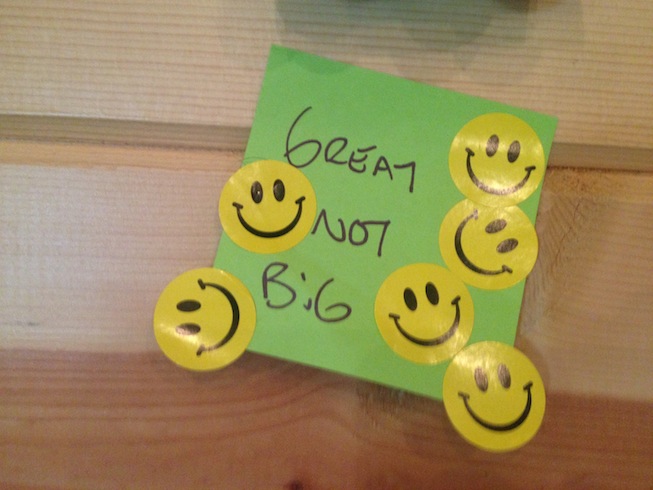 GREAT
NOT
BiG